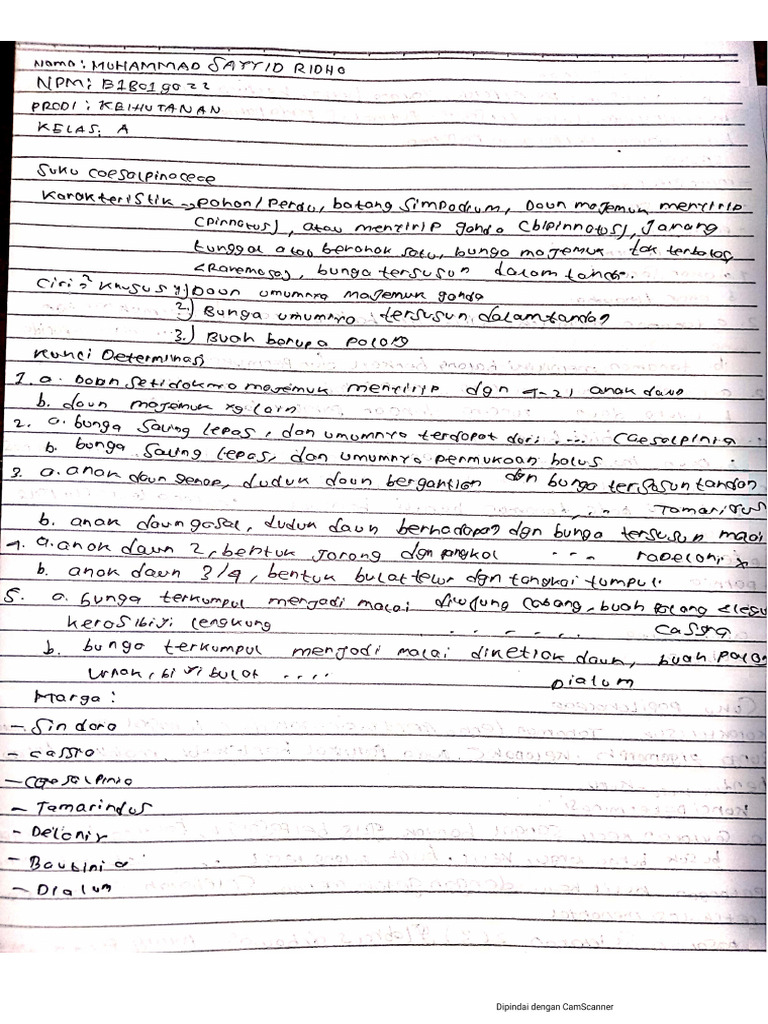 Nama: MUHAMMAD SAYYID RIDHO
NPM: B18019022
PRODI: KEIHUTANAN
KELAS: A
Suku Coesalpinocece
Karakteristik → pohon/Perdu, batang Simpodium, Daun majemuk menyirip
(Pinnatus), atau menyirip ganda (bipinnatus), Jarang
tunggal atau beranak satu, bunga majemuk tak terbatas
<Racemosa>, bunga tersusun dalam tandan.
Ciri² Khusus 1) Daun umumnya majemuk ganda
2.) Bunga umumnya tersusun dalam tandan
3.) Buah berupa Polong
Kunci Determinasi
1. a. Daun Setidaknya majemuk menyirip dgn 4-21 anak daun
b. daun majemuk yg lain
2. a. bunga Saling lepas, dan umumnya terdapat duri .... Caesalpinia
b. bunga Saling lepas, dan umumnya permukaan halus
3. a. anak daun genap, duduk daun bergantian dgn bunga tersusun tandan
.... Tamaridus
b. anak daun gasal, duduk daun berhadapan dgn bunga tersusun malai
4. a. anak daun 2, bentuk jarang dgn pangkal ...
b. anak daun 3/4, bentuk bulat telur dgn tangkai tumpul
5. a. bunga terkumpul menjadi malai diujung cabang, buah polong
keras, biji lengkung ...... Cassia
b. bunga terkumpul menjadi malai diketiak daun, buah polong
lunak, biji bulat .... Dialum
Marga:
- Sindora
- Cassia
- Caesalpinia
- Tamarindus
- Delonix
- Bauhinia
- Dialum
Dipindai dengan CamScanner